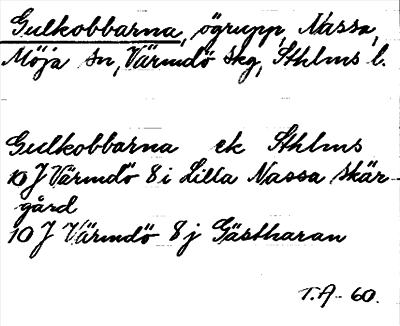 Gulkobbarna, ögrupp, Nassa,
Möja sn, Värmdö skg, Sthlms l.
Gulkobbarna ek Sthlms
10 J Värmdö 8 i Lilla Nassa skär-
gård
10 J Värmdö 8 j Gästharan
T.A. 60.